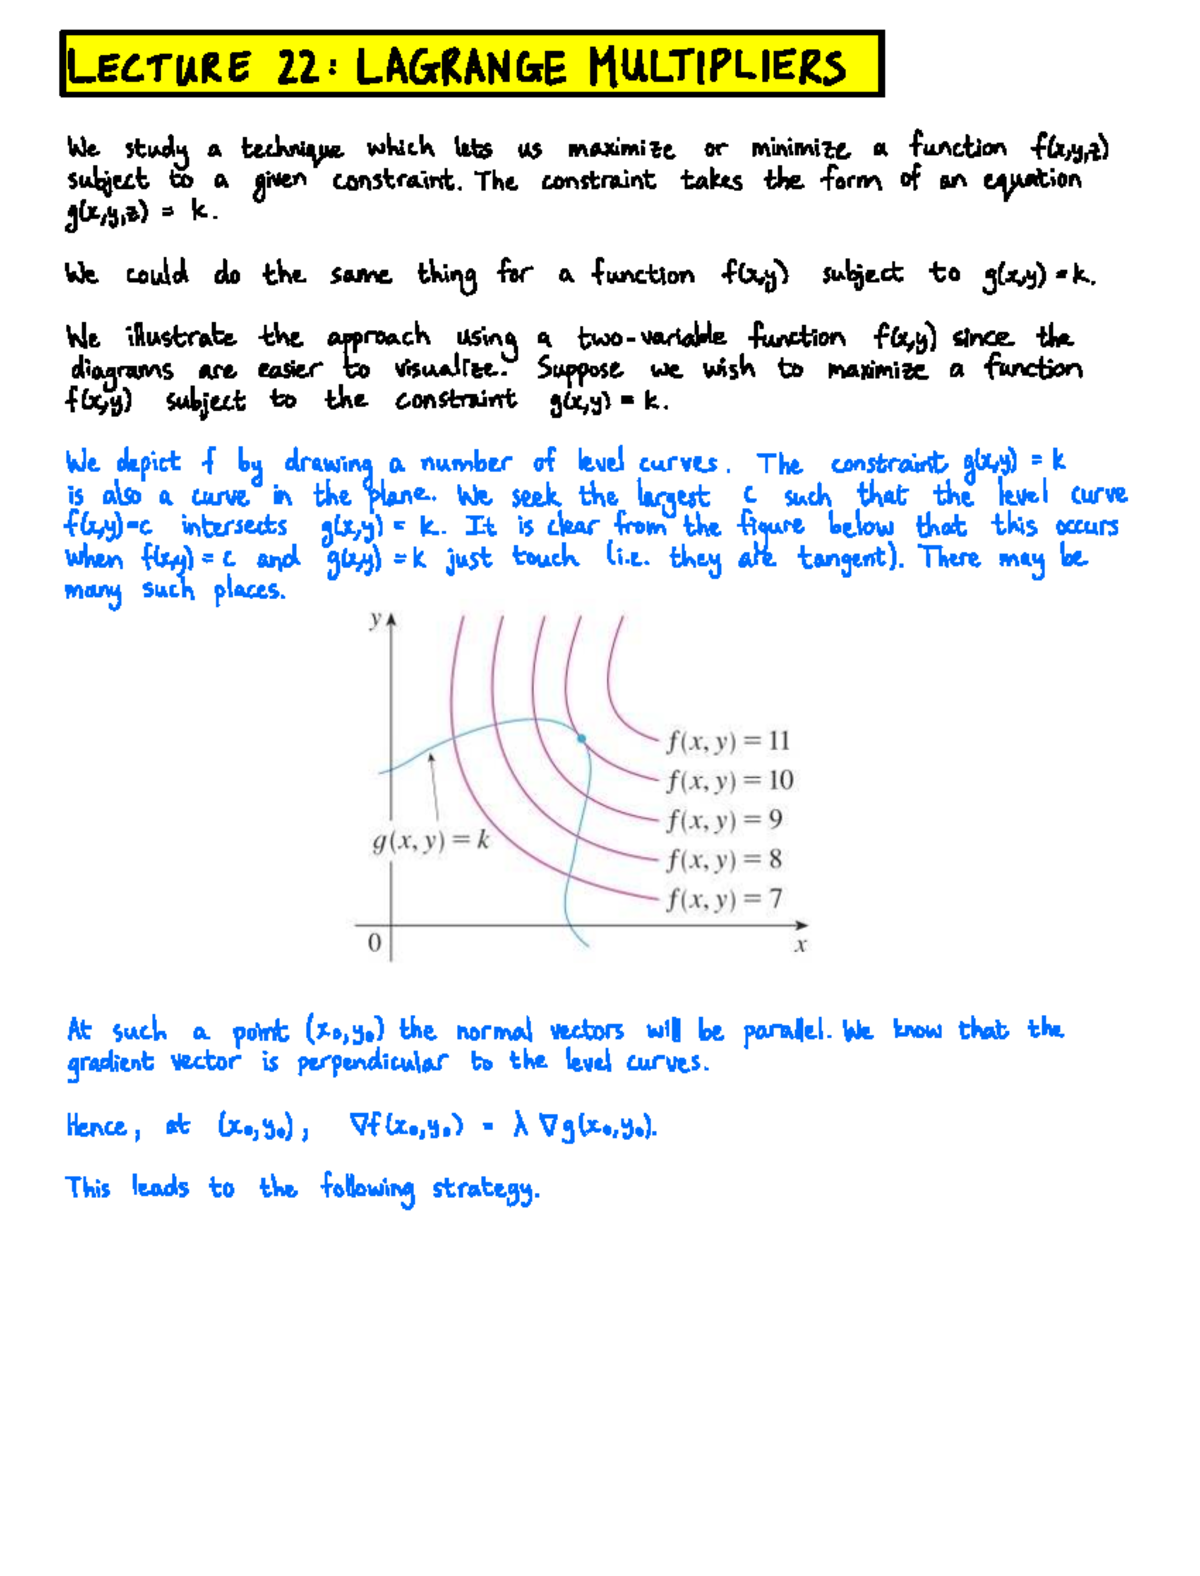 LECTURE 22: LAGRANGE MULTIPLIERS
We study a technique which lets us maximize or minimize a function f(x,y,z)
subject to a given constraint. The constraint takes the form of an equation
g(x,y,z) = k.
We could do the same thing for a function f(x,y) subject to g(x,y) = k.
We illustrate the approach using a two-variable function f(x,y) since the
diagrams are easier to visualize. Suppose we wish to maximize a function
f(x,y) subject to the constraint g(x,y) = k.
We depict f by drawing a number of level curves. The constraint g(x,y) = k
is also a curve in the plane. We seek the largest c such that the level curve
f(x,y)=c intersects g(x,y) = k. It is clear from the figure below that this occurs
when f(x,y) = c and g(x,y) = k just touch (i.e. they are tangent). There may be
many such places.
y
f(x, y) = 11
f(x, y) = 10
f(x, y) = 9
g(x, y) = k
f(x, y) = 8
f(x, y) = 7
0
x
At such a point (x₀,y₀) the normal vectors will be parallel. We know that the
gradient vector is perpendicular to the level curves.
Hence, at (x₀,y₀), ∇f(x₀,y₀) = λ ∇g(x₀,y₀).
This leads to the following strategy.